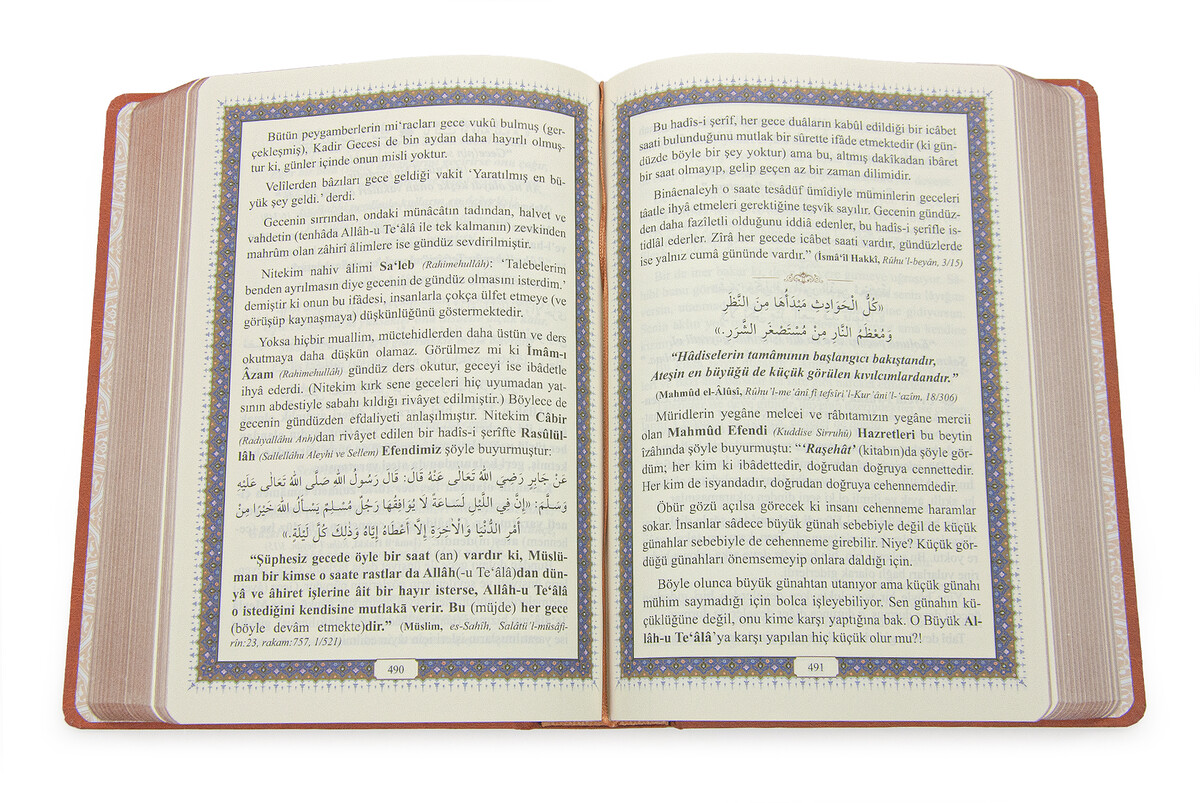 Bütün peygamberlerin mi‘racları gece vukû bulmuş (ger-
çekleşmiş), Kadir Gecesi de bin aydan daha hayırlı olmuş-
tur ki, günler içinde onun misli yoktur.
Velîlerden bâzıları gece geldiği vakit ‘Yaratılmış en bü-
yük şey geldi.’ derdi.
Gecenin sırrından, ondaki münâcatın tadından, halvet ve
vahdetin (tenhâda Allâh-u Te‘âlâ ile tek kalmanın) zevkinden
mahrûm olan zâhirî âlimlere ise gündüz sevdirilmiştir.
Nitekim nahiv âlimi Sa‘leb (Rahimehullâh): ‘Talebelerim
benden ayrılmasın diye gecenin de gündüz olmasını isterdim.’
demiştir ki onun bu ifâdesi, insanlarla çokça ülfet etmeye (ve
görüşüp kaynaşmaya) düşkünlüğünü göstermektedir.
Yoksa hiçbir muallim, müctehidlerden daha üstün ve ders
okutmaya daha düşkün olamaz. Görülmez mi ki İmâm-ı
Âzam (Rahimehullâh) gündüz ders okutur, geceyi ise ibâdetle
ihyâ ederdi. (Nitekim kırk sene geceleri hiç uyumadan yat-
sının abdestiyle sabahı kıldığı rivâyet edilmiştir.) Böylece de
gecenin gündüzden efdaliyeti anlaşılmıştır. Nitekim Câbir
(Radıyallâhu Anh)dan rivâyet edilen bir hadîs-i şerîfte Rasûlül-
lâh (Sallellâhu Aleyhi ve Sellem) Efendimiz şöyle buyurmuştur:
عَنْ جَابِرٍ رَضِيَ اللهُ تَعَالَى عَنْهُ قَالَ: قَالَ رَسُولُ اللهِ صَلَّى اللهُ تَعَالَى عَلَيْهِ
وَسَلَّمَ: «إِنَّ فِي اللَّيْلِ لَسَاعَةً لَا يُوَافِقُهَا رَجُلٌ مُسْلِمٌ يَسْأَلُ اللهَ خَيْرًا مِنْ
أَمْرِ الدُّنْيَا وَالْآخِرَةِ إِلَّا أَعْطَاهُ إِيَّاهُ وَذَلِكَ كُلَّ لَيْلَةٍ.»
“Şüphesiz gecede öyle bir saat (an) vardır ki, Müslü-
man bir kimse o saate rastlar da Allâh(-u Te‘âlâ)dan dün-
yâ ve âhiret işlerine âit bir hayır isterse, Allâh-u Te‘âlâ
o istediğini kendisine mutlakâ verir. Bu (müjde) her gece
(böyle devâm etmekte)dir.” (Müslim, es-Sahîh, Salâtü’l-müsâfi-
rîn:23, rakam:757, 1/521)
490
Bu hadîs-i şerîf, her gece duâların kabûl edildiği bir icâbet
saati bulunduğunu mutlak bir sûrette ifâde etmektedir (ki gün-
düzde böyle bir şey yoktur) ama bu, altmış dakîkadan ibâret
bir saat olmayıp, gelip geçen az bir zaman dilimidir.
Binâenaleyh o saate tesâdüf ümîdiyle müminlerin geceleri
tâatle ihyâ etmeleri gerektiğine teşvîk sayılır. Gecenin gündüz-
den daha fazîletli olduğunu iddiâ edenler, bu hadîs-i şerîfle is-
tidlâl ederler. Zîrâ her gecede icâbet saati vardır, gündüzlerde
ise yalnız cumâ gününde vardır.” (İsmâ‘îl Hakkî, Rûhu’l-beyân, 3/15)
«كُلُّ الْحَوَادِثِ مَبْدَأُهَا مِنَ النَّظَرِ
وَمُعْظَمُ النَّارِ مِنْ مُسْتَصْغَرِ الشَّرَرِ.»
“Hâdiselerin tamâmının başlangıcı bakıştandır,
Ateşin en büyüğü de küçük görülen kıvılcımlardandır.”
(Mahmûd el-Âlûsî, Rûhu’l-me‘ânî fî tefsîri’l-Kur’âni’l-‘azîm, 18/306)
Müridlerin yegâne melcei ve râbıtamızın yegâne mercii
olan Mahmûd Efendi (Kuddise Sirruhû) Hazretleri bu beytin
îzâhında şöyle buyurmuştu: “‘Raşehât’ (kitabın)da şöyle gör-
düm; her kim ki ibâdettedir, doğrudan doğruya cennettedir.
Her kim de isyandadır, doğrudan doğruya cehennemdedir.
Öbür gözü açılsa görecek ki insan cehenneme haramlar
sokar. İnsanlar sâdece büyük günah sebebiyle değil de küçük
günahlar sebebiyle de cehenneme girebilir. Niye? Küçük gör-
düğü günahları önemsemeyip onlara daldığı için.
Böyle olunca büyük günahtan utanıyor ama küçük günahı
mühim saymadığı için bolca işleyebiliyor. Sen günahın kü-
çüklüğüne değil, onu kime karşı yaptığına bak. O Büyük Al-
lâh-u Te‘âlâ’ya karşı yapılan hiç küçük olur mu?!
491